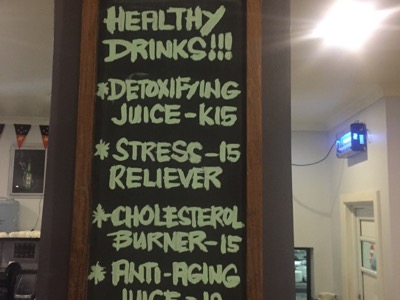 HEALTHY
DRINKS!!!
*DETOXIFYING
JUICE-K15
*STRESS-15
RELIEVER
*CHOLESTEROL
BURNER-15
*ANTI-AGING
JUICE-10